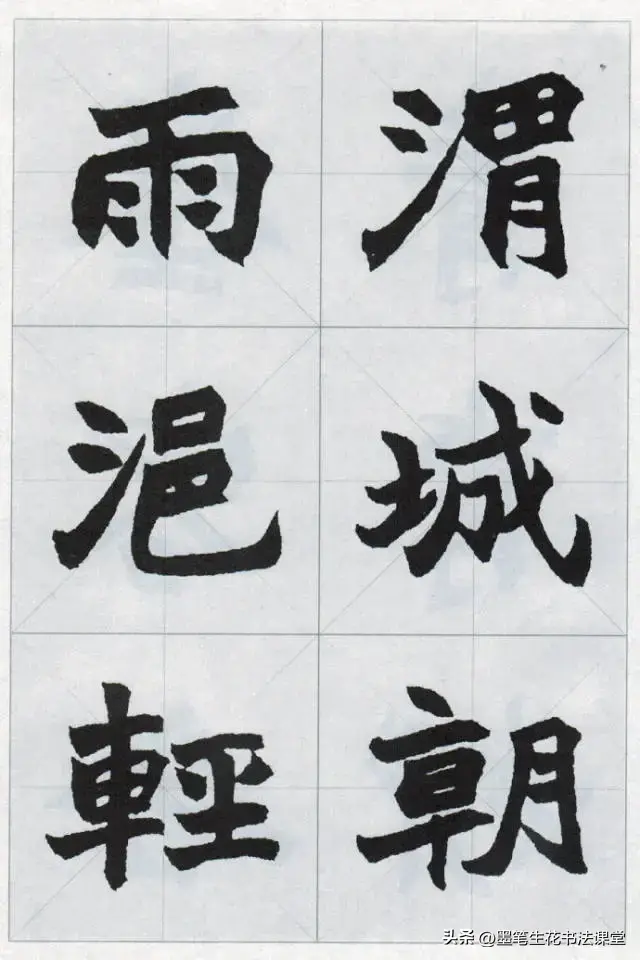 渭城朝
雨浥輕
头条 @墨笔生花书法课堂